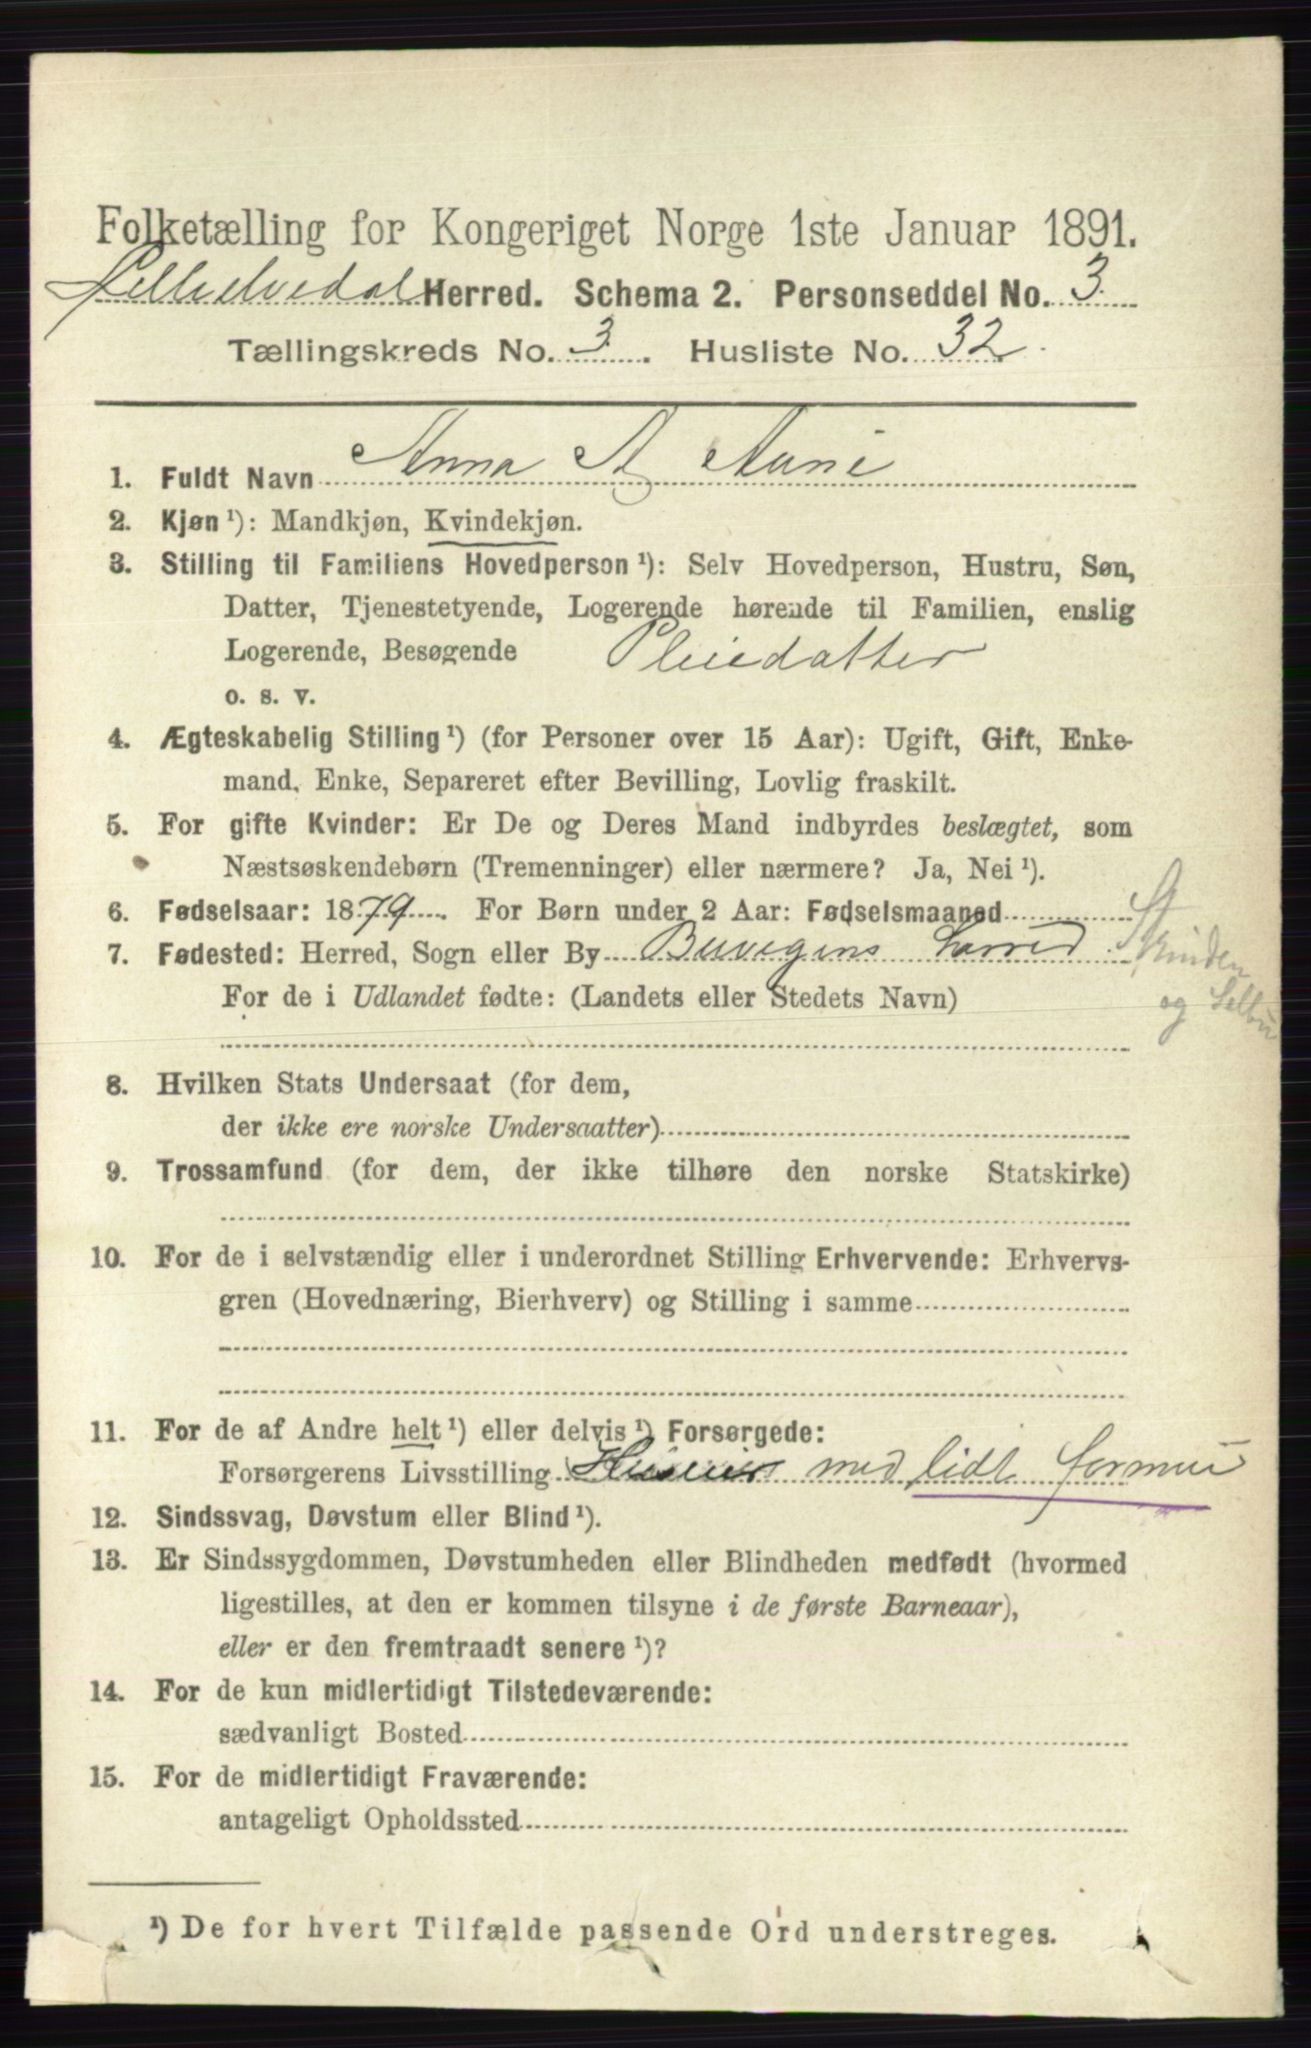 Folketælling for Kongeriget Norge 1ste Januar 1891.
Lilleelvedal Herred. Schema 2. Personseddel No. 3.
Tællingskreds No. 3. Husliste No. 32.
1. Fuldt Navn Anna A. Aune
2. Kjøn ¹): Mandkjøn, Kvindekjøn.
3. Stilling til Familiens Hovedperson ¹): Selv Hovedperson, Hustru, Søn,
Datter, Tjenestetyende, Logerende hørende til Familien, enslig
Logerende, Besøgende Pleiedatter
o. s. v.
4. Ægteskabelig Stilling ¹) (for Personer over 15 Aar): Ugift, Gift, Enke-
mand, Enke, Separeret efter Bevilling, Lovlig fraskilt.
5. For gifte Kvinder: Er De og Deres Mand indbyrdes beslægtet, som
Næstsøskendebørn (Tremenninger) eller nærmere? Ja, Nei ¹).
6. Fødselsaar: 1879. For Børn under 2 Aar: Fødselsmaaned
7. Fødested: Herred, Sogn eller By Buvigens Strinden
og Selbu
For de i Udlandet fødte: (Landets eller Stedets Navn)
8. Hvilken Stats Undersaat (for dem,
der ikke ere norske Undersaatter)
9. Trossamfund (for dem, der ikke tilhøre den norske Statskirke)
10. For de i selvstændig eller i underordnet Stilling Erhvervende: Erhvervs-
gren (Hovednæring, Bierhverv) og Stilling i samme
11. For de af Andre helt ¹) eller delvis ¹) Forsørgede:
Forsørgerens Livsstilling med lidt formue
12. Sindssvag, Døvstum eller Blind ¹).
13. Er Sindssygdommen, Døvstumheden eller Blindheden medfødt (hvormed
ligestilles, at den er kommen tilsyne i de første Barneaar),
eller er den fremtraadt senere ¹)?
14. For de kun midlertidigt Tilstedeværende:
sædvanligt Bosted
15. For de midlertidigt Fraværende:
antageligt Opholdssted
¹) De for hvert Tilfælde passende Ord understreges.